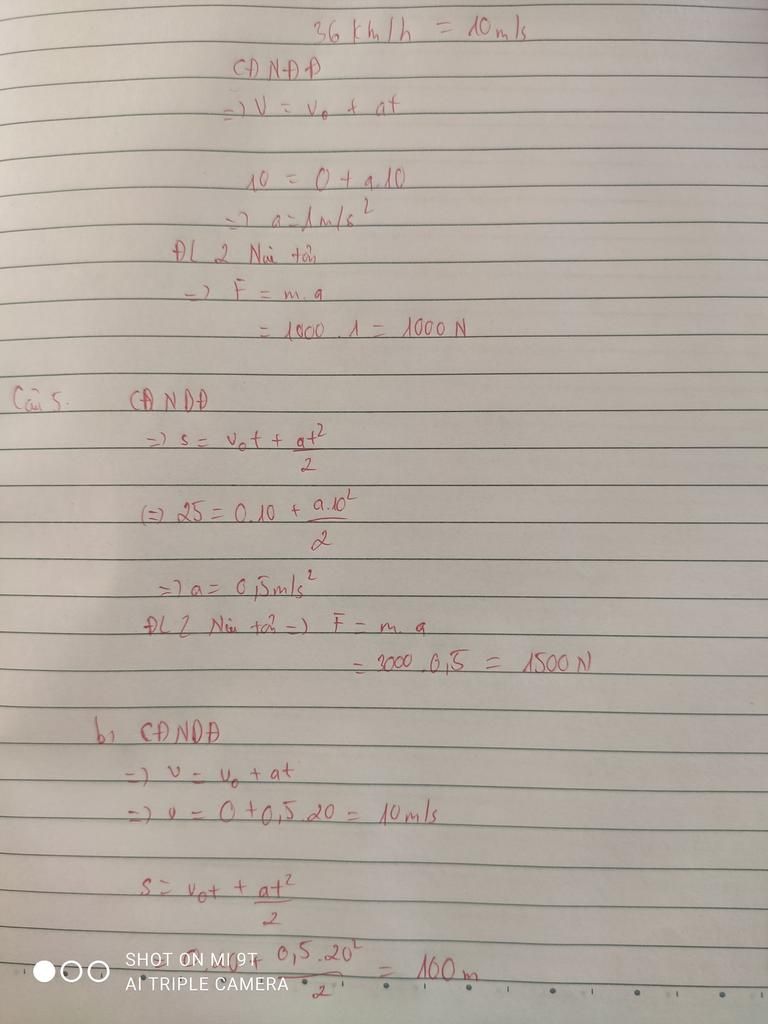 36 km/h = 10 m/s
CĐNDĐ
=> v = v₀ + at
10 = 0 + a.10
=> a = 1 m/s²
ĐL 2 Niu tơn
=> F = m.a
= 1000 . 1 = 1000 N
Câu 5. CĐNDĐ
=> s = v₀t + at²/2
(=) 25 = 0.10 + a.10²/2
=> a = 0,5 m/s²
ĐL 2 Niu tơn => F = m.a
= 3000 . 0,5 = 1500 N
b, CĐNDĐ
=> v = v₀ + at
=> v = 0 + 0,5.20 = 10 m/s
s = v₀t + at²/2
+ 0,5.20²/2 = 100 m
SHOT ON MI 9T
AI TRIPLE CAMERA